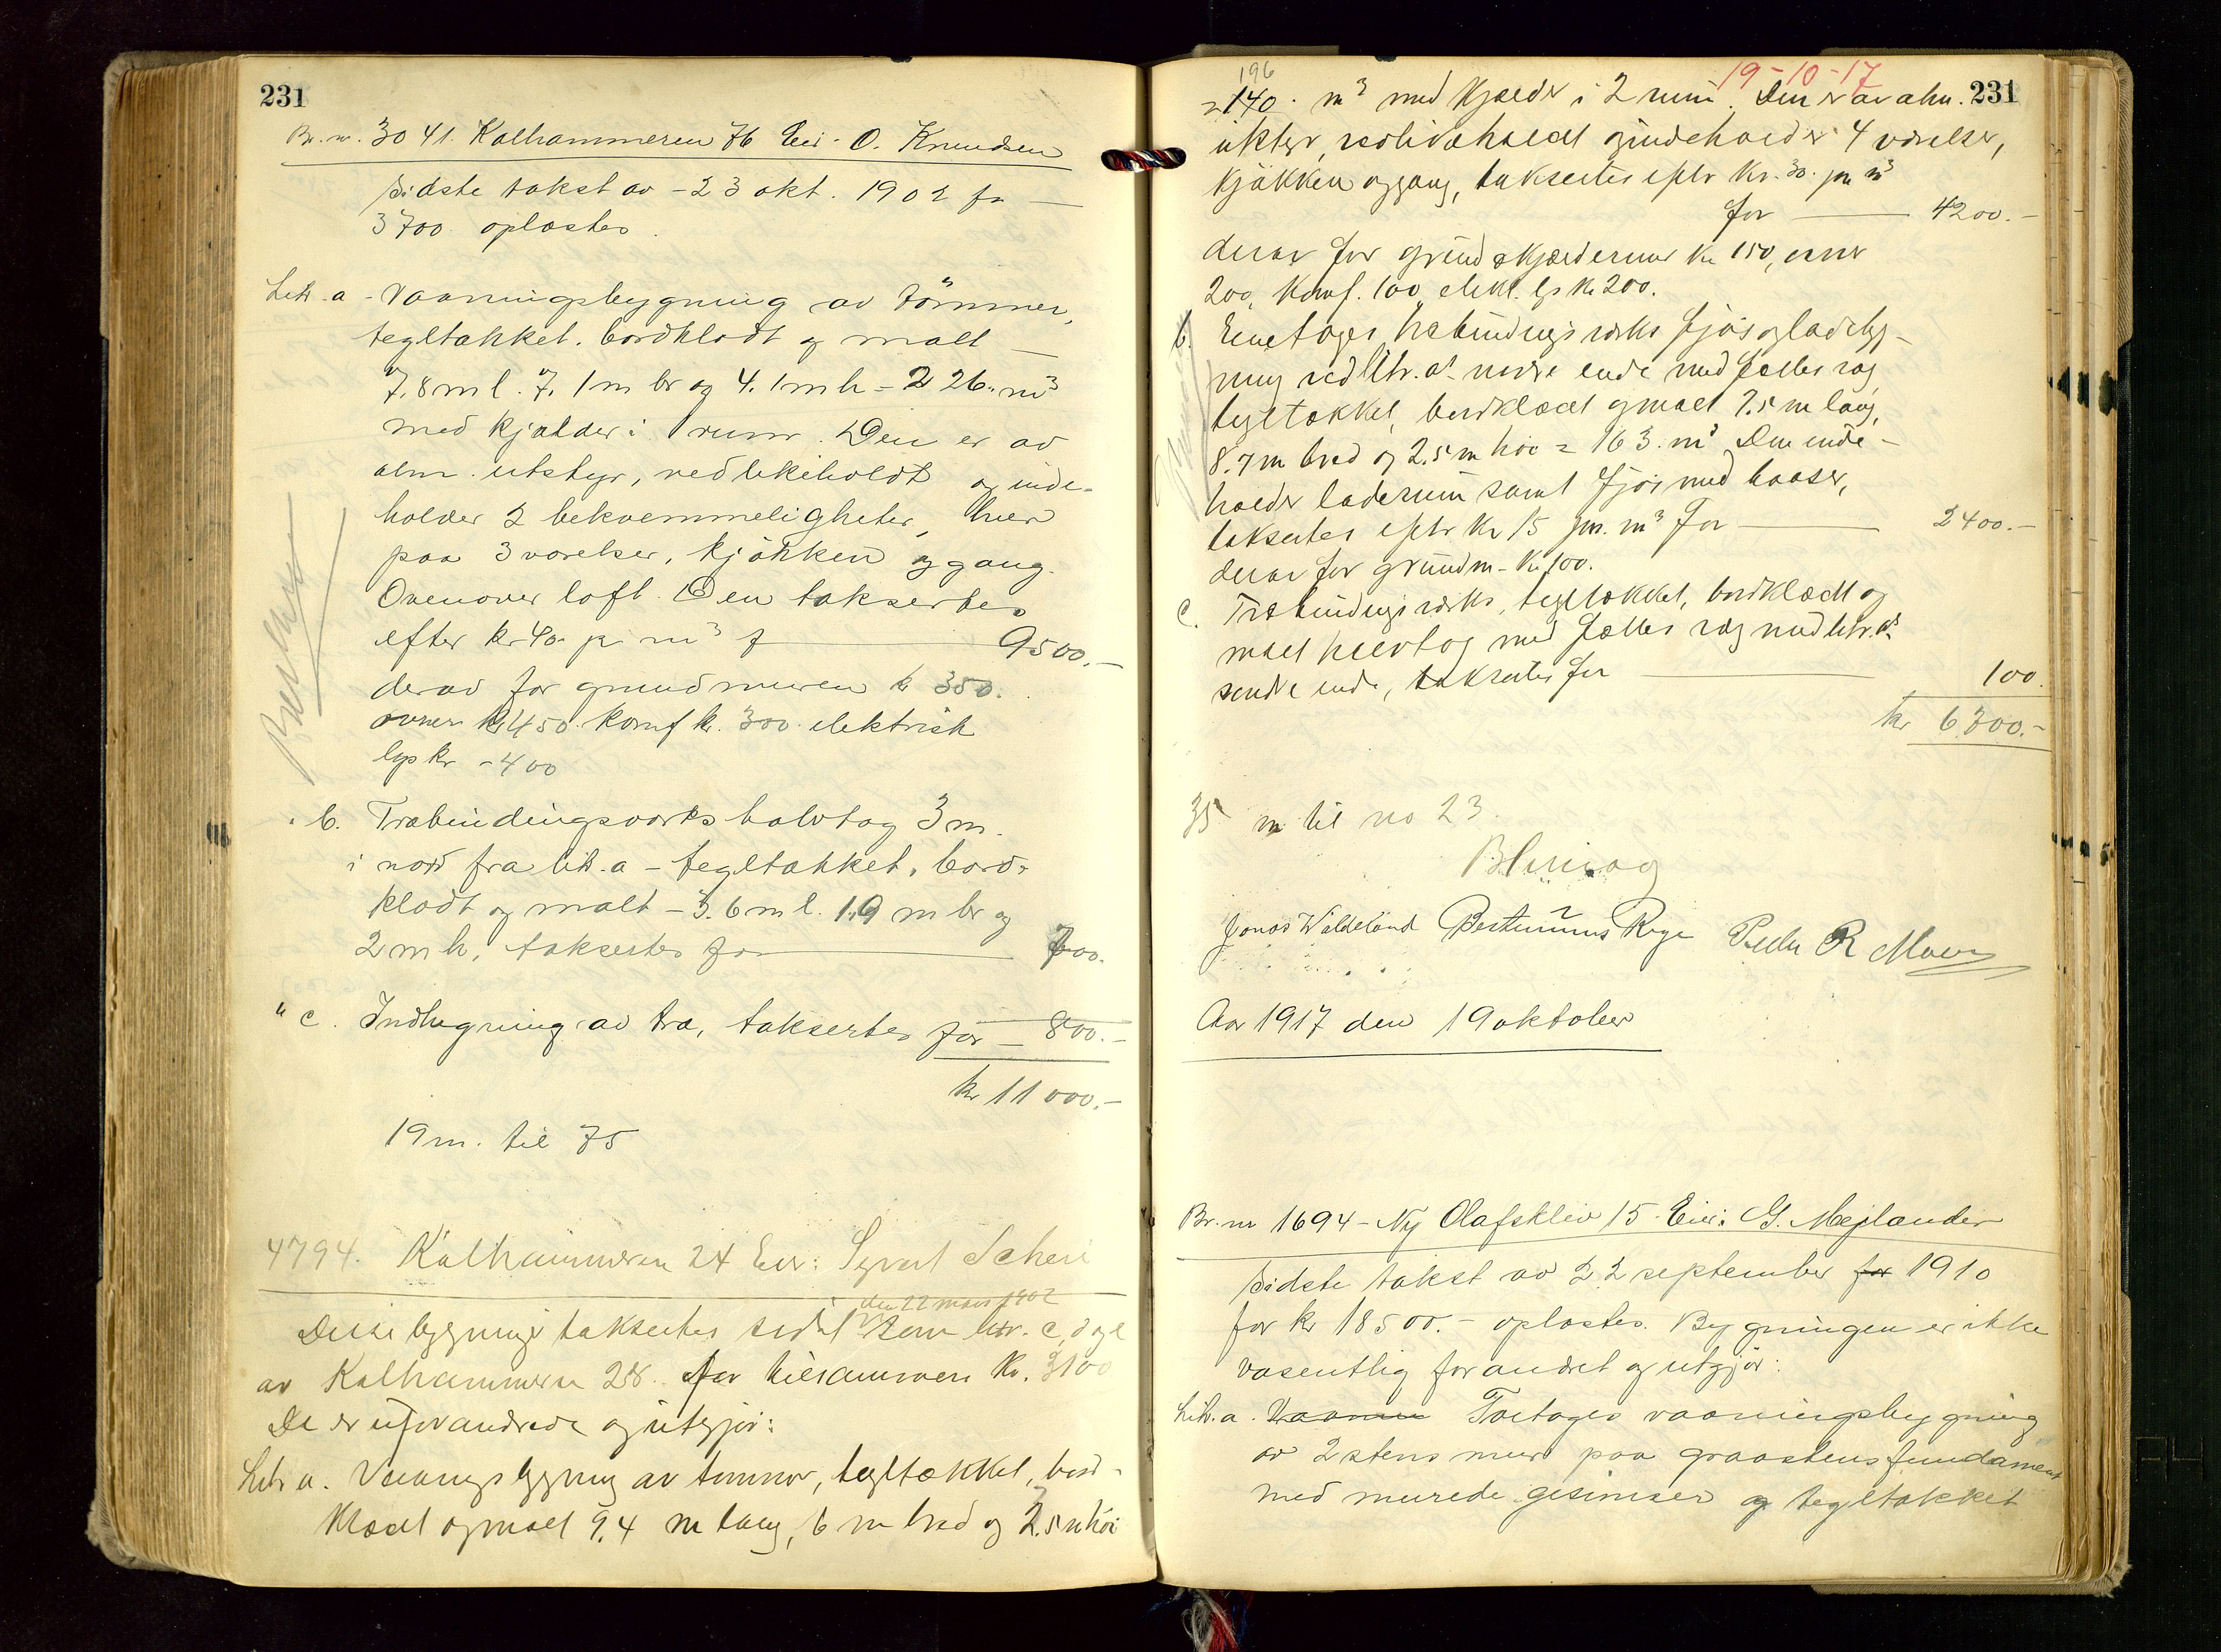 231
Br. nr. 3041. Kalhammeren 76 Eier - O. Knudsen
Sidste takst av - 23 okt. 1902 for
3700 oplæstes.
Litr. a - Vaaningsbygning av tömmer,
tegltækket, bordklædt og malt
7.8 m l. 7.1 m br og 4.1 m h = 226 m³
med kjælder i 1 rum. Den er av
alm. utstyr, vedlikeholdt og inde-
holder 2 bekvemmeligheter, hver
paa 3 værelser, kjökken og gang.
Ovenover loft. Den takseres
efter kr 40 pr m³ f 9500.-
derav for grundmuren kr 350.
ovner kr 450. komf kr. 300 elektrisk
lys kr - 400
b. Træbindingsverks halvtag 3 m.
i nord fra litr. a - tegltækket, bord-
klædt og malt - 3.6 m l. 1.9 m br og
2 m h, takseres for 700.
" c. Indhegning av træ, takseres for 800.-
kr 11000.-
19 m. til 75
4794. Kalhammeren 24 Eier: Syvert Scheri
den 22 mars 1902
Disse bygninger takseres sidst som litr. c, d og e
av Kalhammeren 28 for tilsammen Kr. 3100
De er uforandrede og utgjör:
Litr a. Vaaningsbygning av tømmer, tegltækket, bord-
klædt og malt 9.4 m lang, 6 m bred og 2.5 m høi
196 19-10-17
= 140 m³ med kjælder i 2 rum. Den er av alm. 231
utstyr, vedlikeholdt og indeholder 4 værelser,
kjökken og gang, takseres efter Kr. 30. pr m³
for 4200.-
derav for grund & kjælderum Kr 150, ovner
200, Komf. 100, elekt. lys Kr 200.
b. Eenetages træbindingsverks fjös og ladebyg-
ning ved litr. a's nordre ende med fælles væg
tegltækket, bordklædt og malt 7.5 m lang,
8.7 m bred og 2.5 m høi = 163 m³ Den inde-
holder laderum samt fjös med baaser,
takseres efter Kr 15 pr. m³ for 2400.-
derav for grundm - Kr 100.
c. Træbindingsverks, tegltækket, bordklædt og
malt halvtag med fælles væg med litr. a's
søndre ende, takseres for 100.
kr 6300.-
35 m til no 23.
Jonas Waldeland Bertinius Rege Peder R Moen
Aar 1917 den 19 oktober
Br. nr 1694 - Ny Olafsklev 15 - Eier: G. Mejlænder
Sidste takst av 22 september for 1910
for kr 18500.- oplæstes. Bygningen er ikke
væsentlig forandret og utgjör:
Litr. a. Vaanin Toetages vaaningsbygning
av 2 stens mur paa graastensfundament
med murede gesimser og tegltækket